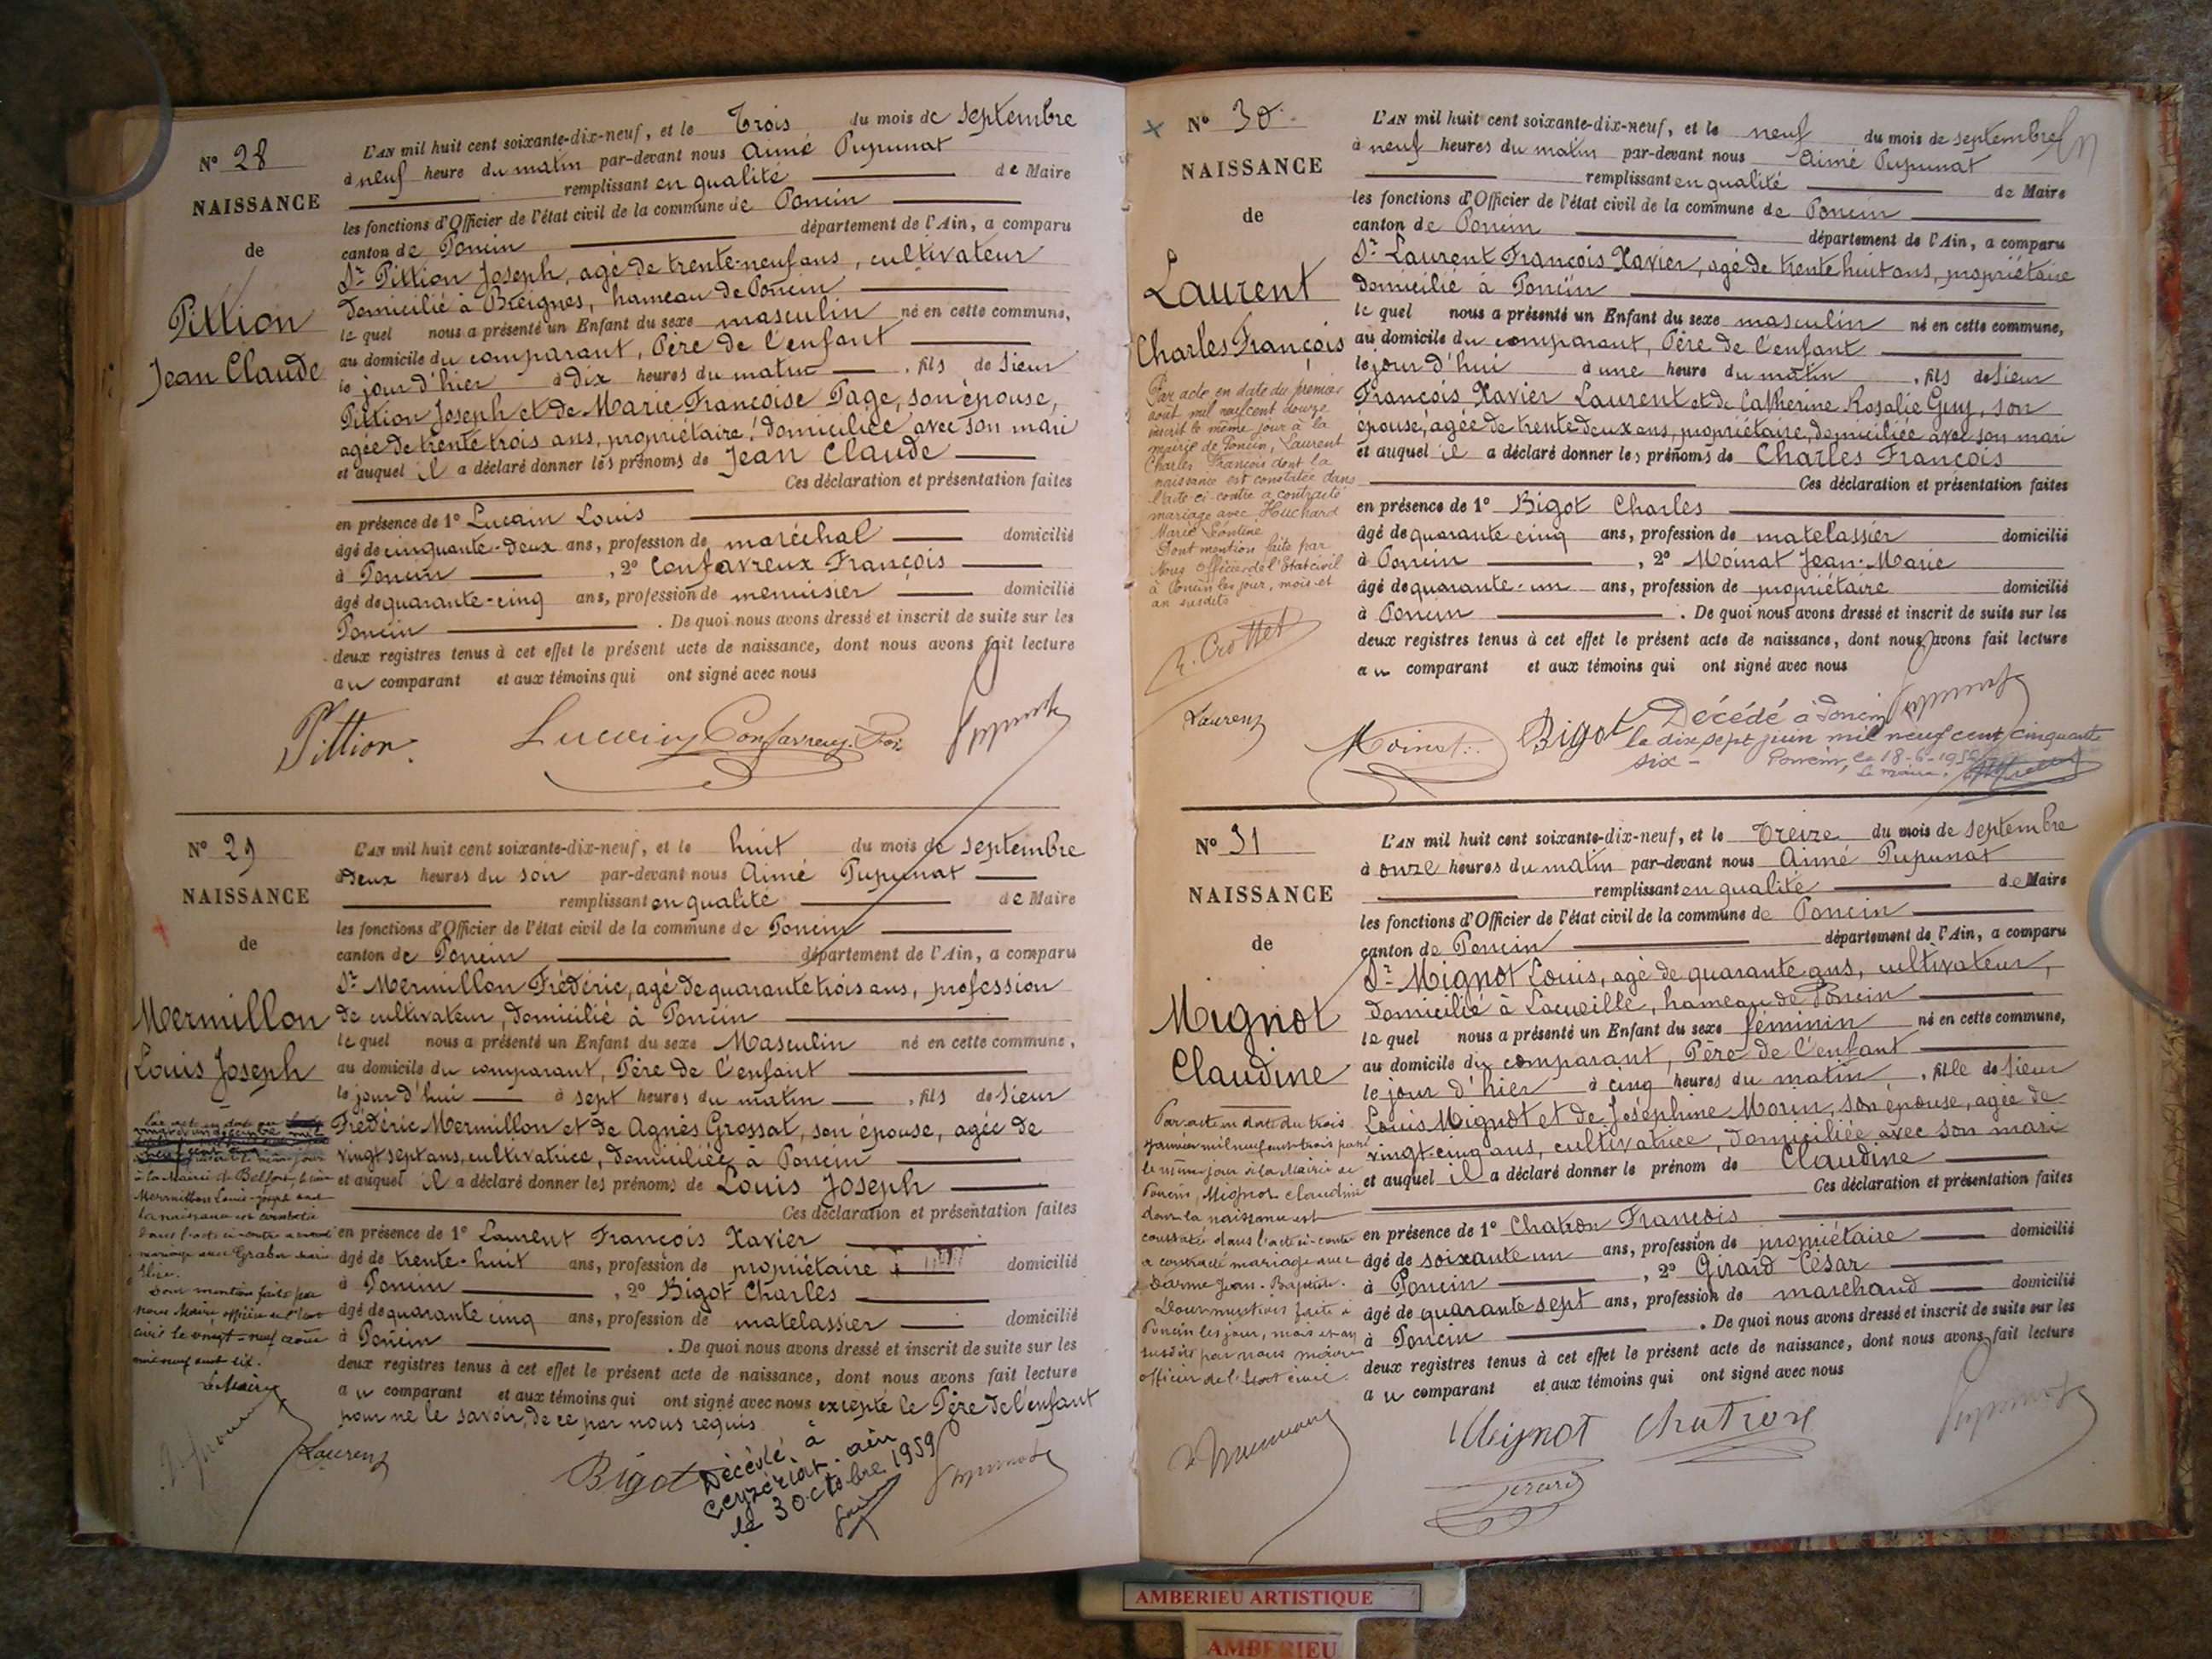 N° 28
NAISSANCE
de
Pittion
Jean Claude
L'AN mil huit cent soixante-dix-neuf, et le Trois du mois de septembre
à neuf heure du matin par-devant nous Aimé Pupunat
remplissant en qualité de Maire
les fonctions d'Officier de l'état civil de la commune de Poncin
canton de Poncin département de l'Ain, a comparu
Sr Pittion Joseph, agé de trente-neuf ans, cultivateur
domicilié à Breignes, hameau de Poncin
le quel nous a présenté un Enfant du sexe masculin né en cette commune,
au domicile du comparant, Père de l'enfant
le jour d'hier à dix heures du matin , fils de Sieur
Pittion Joseph et de Marie Françoise Page, son épouse,
agée de trente trois ans, propriétaire, domiciliée avec son mari
et auquel il a déclaré donner les prénoms de Jean Claude
Ces déclaration et présentation faites
en présence de 1° Lucain Louis
âgé de cinquante-deux ans, profession de maréchal domicilié
à Poncin , 2° Confavreux François
âgé de quarante-cinq ans, profession de menuisier domicilié
Poncin . De quoi nous avons dressé et inscrit de suite sur les
deux registres tenus à cet effet le présent acte de naissance, dont nous avons fait lecture
au comparant et aux témoins qui ont signé avec nous
Pittion Lucain Confavreux Pupunat
N° 29
NAISSANCE
de
Mermillon
Louis Joseph
à la Mairie de Belfort, le sieur
Mermillon Louis-Joseph dont
la naissance est constatée
dans l'acte ci-contre a contracté
mariage avec Graber Marie
Elise.
Dont mention faite par
nous Maire, officier de l'état
civil le vingt-neuf août
mil neuf cent dix.
Le Maire
L'AN mil huit cent soixante-dix-neuf, et le huit du mois de septembre
à deux heures du soir par-devant nous Aimé Pupunat
remplissant en qualité de Maire
les fonctions d'Officier de l'état civil de la commune de Poncin
canton de Poncin département de l'Ain, a comparu
Sr Mermillon Frédéric, agé de quarante trois ans, profession
de cultivateur, domicilié à Poncin
le quel nous a présenté un Enfant du sexe Masculin né en cette commune,
au domicile du comparant, Père de l'enfant
le jour d'hui à sept heures du matin , fils de Sieur
Frédéric Mermillon et de Agnès Grossat, son épouse, agée de
vingt sept ans, cultivatrice, domiciliée à Poncin
et auquel il a déclaré donner les prénoms de Louis Joseph
Ces déclaration et présentation faites
en présence de 1° Laurent François Xavier
âgé de trente-huit ans, profession de propriétaire domicilié
à Poncin , 2° Bigot Charles
âgé de quarante cinq ans, profession de matelassier domicilié
à Poncin . De quoi nous avons dressé et inscrit de suite sur les
deux registres tenus à cet effet le présent acte de naissance, dont nous avons fait lecture
au comparant et aux témoins qui ont signé avec nous excepté le Père de l'enfant
pour ne le savoir, de ce par nous requis
Laurent Bigot Pupunat
Décédé à
Ceyzériat. ain
le 3 octobre 1959
N° 30
NAISSANCE
de
Laurent
Charles François
Par acte en date du premier
août mil neuf cent douze
inscrit le même jour à la
mairie de Poncin, Laurent
Charles François dont la
naissance est constatée dans
l'acte ci-contre a contracté
mariage avec Huchard
Marie Léontine
Dont mention faite par
Nous Officier de l'Etat civil
à Poncin les jour, mois et
an susdits
E. Crottet
L'AN mil huit cent soixante-dix-neuf, et le neuf du mois de septembre
à neuf heures du matin par-devant nous Aimé Pupunat
remplissant en qualité de Maire
les fonctions d'Officier de l'état civil de la commune de Poncin
canton de Poncin département de l'Ain, a comparu
Sr Laurent François Xavier, agé de trente huit ans, propriétaire
domicilié à Poncin
le quel nous a présenté un Enfant du sexe masculin né en cette commune,
au domicile du comparant, Père de l'enfant
le jour d'hui à une heure du matin , fils de Sieur
François Xavier Laurent et de Catherine Rosalie Guy, son
épouse, agée de trente deux ans, propriétaire, domiciliée avec son mari
et auquel il a déclaré donner les prénoms de Charles François
Ces déclaration et présentation faites
en présence de 1° Bigot Charles
âgé de quarante cinq ans, profession de matelassier domicilié
à Poncin , 2° Moinat Jean-Marie
âgé de quarante-un ans, profession de propriétaire domicilié
à Poncin . De quoi nous avons dressé et inscrit de suite sur les
deux registres tenus à cet effet le présent acte de naissance, dont nous avons fait lecture
au comparant et aux témoins qui ont signé avec nous
Laurent Moinat Bigot Pupunat
Décédé à Poncin
le dix sept juin mil neuf cent cinquante
six - Poncin, le 18-6-1956
Le maire,
N° 31
NAISSANCE
de
Mignot
Claudine
Par acte en date du trois
janvier mil neuf cent trois passé
le même jour à la Mairie de
Poncin, Mignot Claudine
dont la naissance est
constatée dans l'acte ci-contre
a contracté mariage avec
Darme Jean-Baptiste.
Dont mention faite à
Poncin les jour, mois et an
susdits par nous maire
officier de l'état civil.
L'AN mil huit cent soixante-dix-neuf, et le Treize du mois de septembre
à onze heures du matin par-devant nous Aimé Pupunat
remplissant en qualité de Maire
les fonctions d'Officier de l'état civil de la commune de Poncin
canton de Poncin département de l'Ain, a comparu
Sr Mignot Louis, agé de quarante ans, cultivateur,
domicilié à Lacueille, hameau de Poncin
le quel nous a présenté un Enfant du sexe féminin né en cette commune,
au domicile du comparant, Père de l'enfant
le jour d'hier à cinq heures du matin , fille de Sieur
Louis Mignot et de Joséphine Morin, son épouse, agée de
vingt-cinq ans, cultivatrice, domiciliée avec son mari
et auquel il a déclaré donner le prénom de Claudine
Ces déclaration et présentation faites
en présence de 1° Chatron François
âgé de soixante-un ans, profession de propriétaire domicilié
à Poncin , 2° Girard César
âgé de quarante sept ans, profession de marchand domicilié
à Poncin . De quoi nous avons dressé et inscrit de suite sur les
deux registres tenus à cet effet le présent acte de naissance, dont nous avons fait lecture
au comparant et aux témoins qui ont signé avec nous
Mignot Chatron Pupunat
Girard
AMBERIEU ARTISTIQUE
AMBERIEU